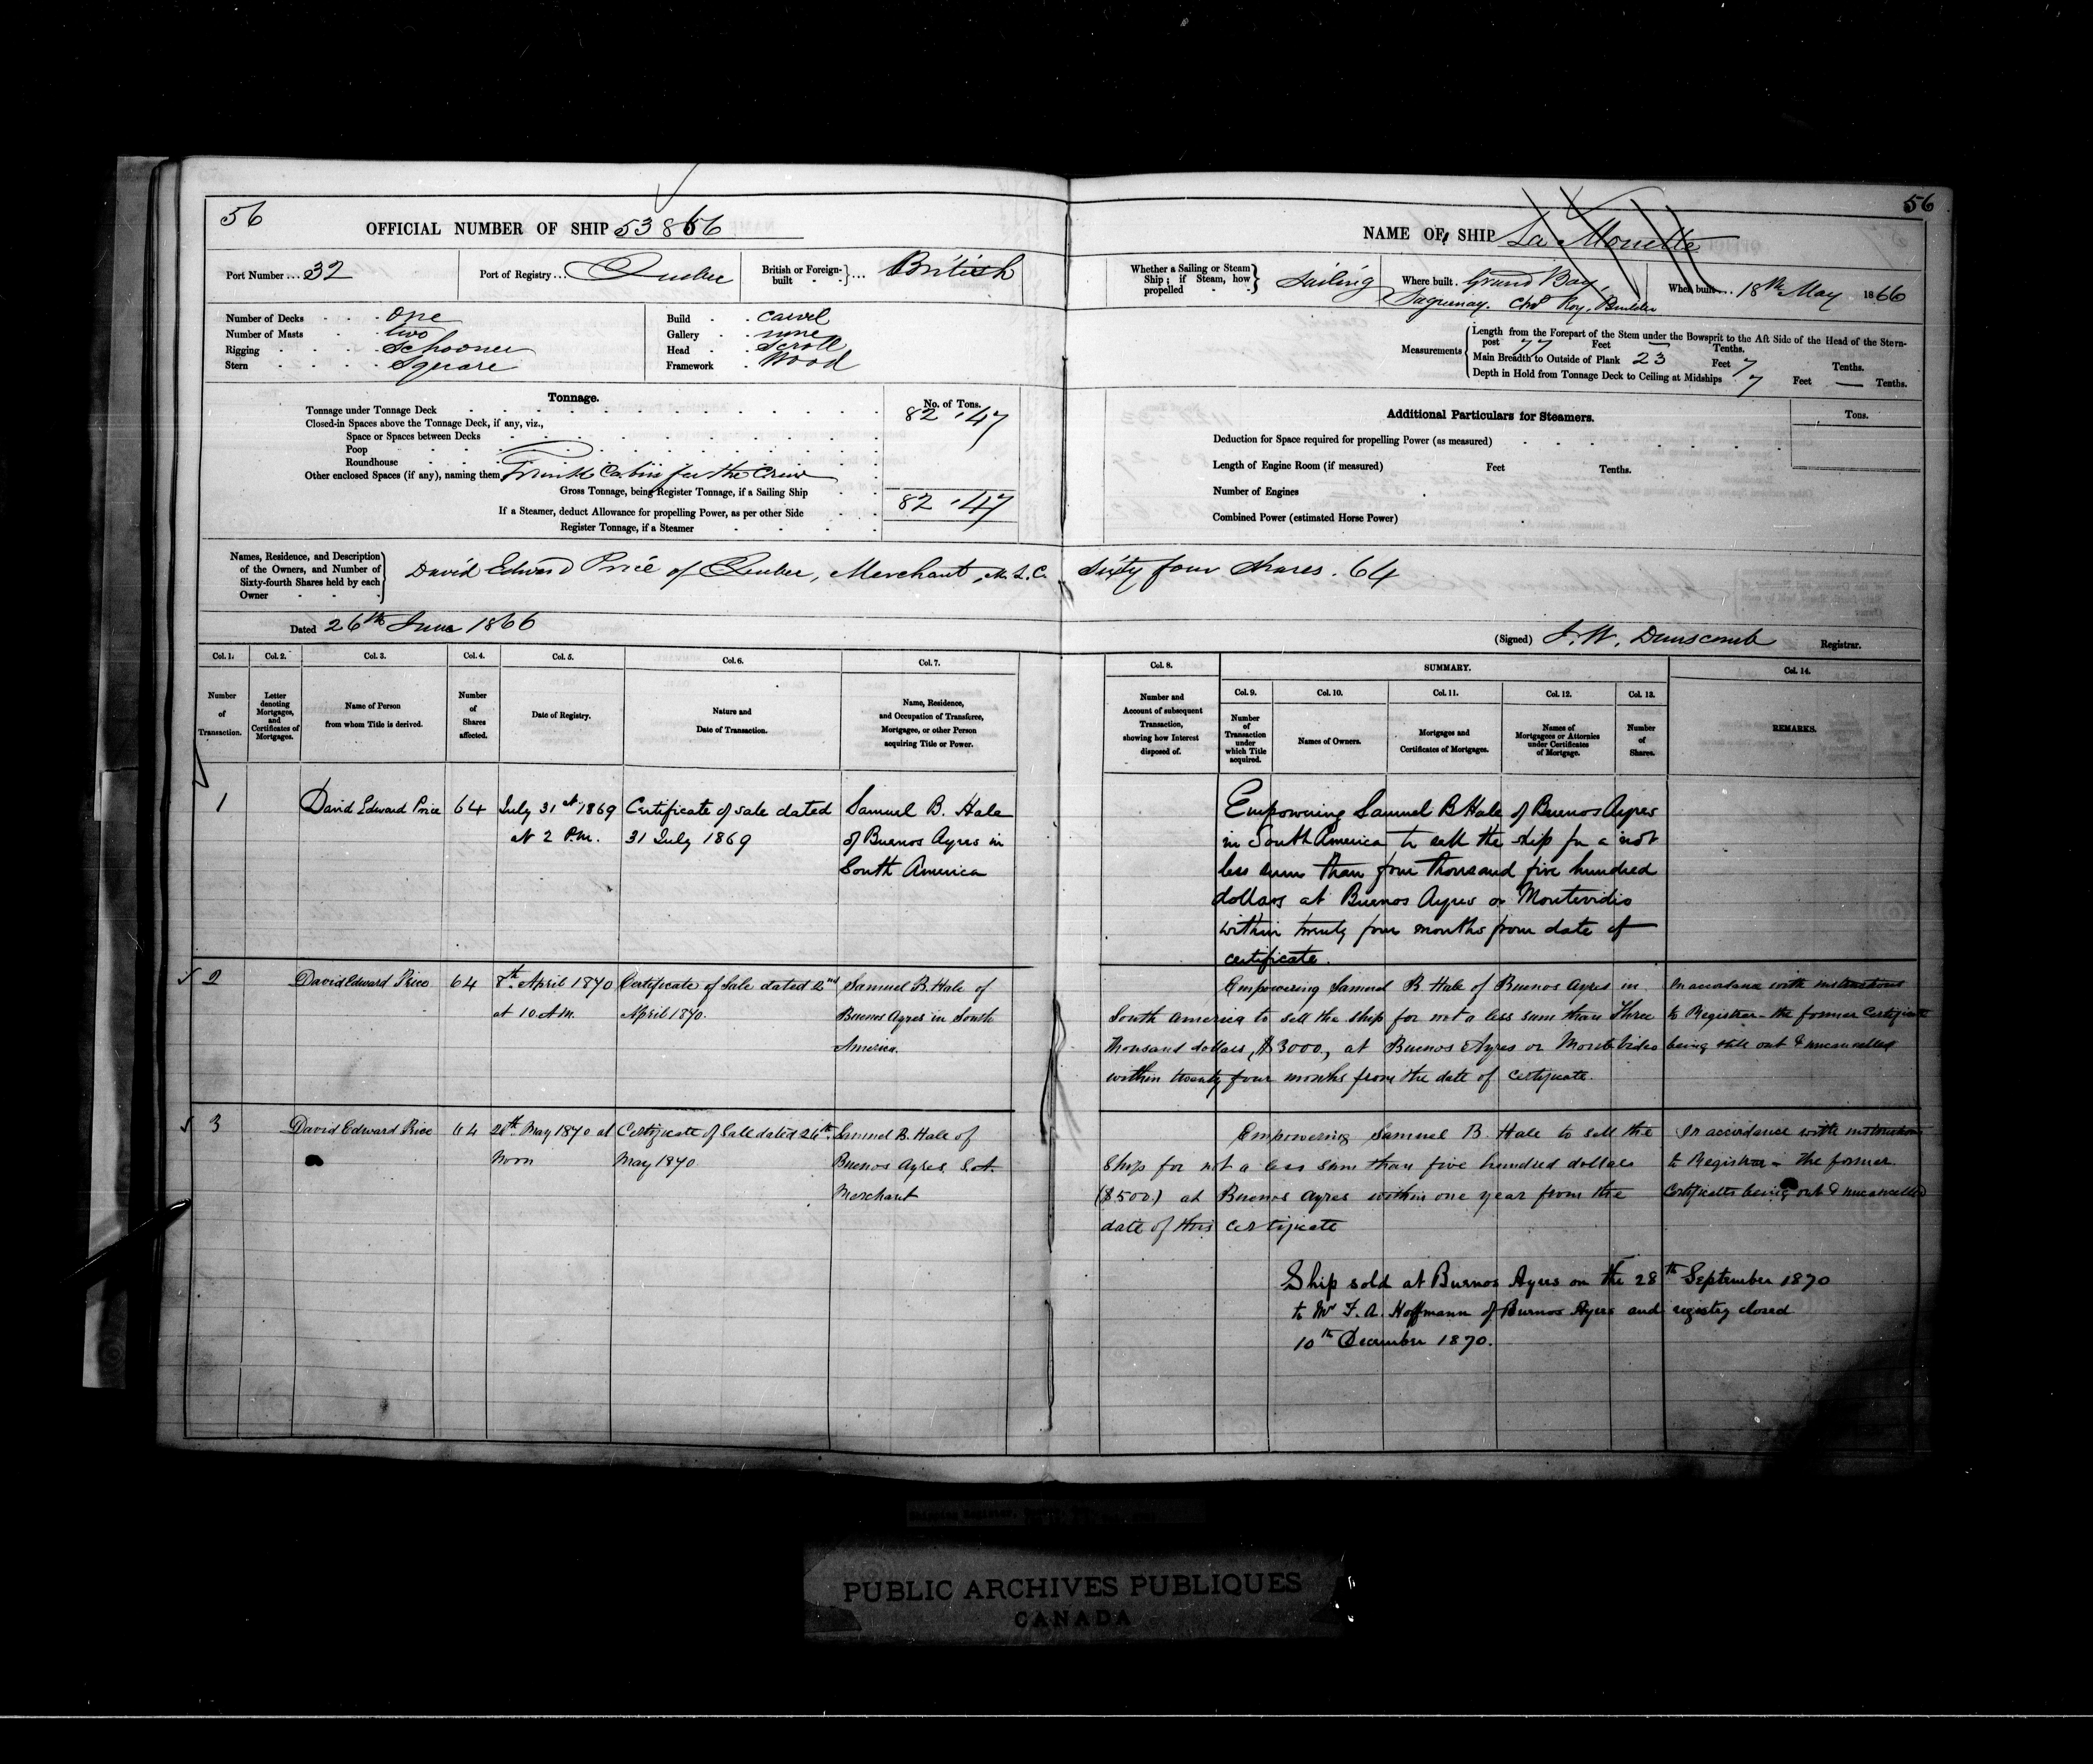 56
OFFICIAL NUMBER OF SHIP
56
NAME OF SHIP La Mouette
Port Number ... 32
Port of Registry ... Quebec
British or Foreign-built ... British
Whether a Sailing or Steam Ship; if Steam, how propelled Sailing
Where built Grand Bay, Saguenay. Chs Roy, Builder
When built ... 18th May 1866
Number of Decks one
Number of Masts two
Rigging Schooner
Stern Square
Build carvel
Gallery none
Head Scroll
Framework Wood
Measurements
Length from the Forepart of the Stem under the Bowsprit to the Aft Side of the Head of the Stern-
post 77 Feet — Tenths.
Main Breadth to Outside of Plank 23 Feet 7 Tenths.
Depth in Hold from Tonnage Deck to Ceiling at Midships 7 Feet — Tenths.
Tonnage.
No. of Tons.
Tonnage under Tonnage Deck 82 .47
Closed-in Spaces above the Tonnage Deck, if any, viz.,
Space or Spaces between Decks
Poop
Roundhouse
Other enclosed Spaces (if any), naming them Trunk Cabin for the Crew
Gross Tonnage, being Register Tonnage, if a Sailing Ship 82 .47
If a Steamer, deduct Allowance for propelling Power, as per other Side
Register Tonnage, if a Steamer
Additional Particulars for Steamers.
Tons.
Deduction for Space required for propelling Power (as measured)
Length of Engine Room (if measured) Feet Tenths.
Number of Engines
Combined Power (estimated Horse Power)
Names, Residence, and Description
of the Owners, and Number of
Sixty-fourth Shares held by each
Owner
David Edward Price of Quebec, Merchant, M.L.C. Sixty four Shares. 64
Dated 26th June 1866
(Signed) J. W. Dunscomb Registrar.
Col. 1. Number of Transaction.
Col. 2. Letter denoting Mortgages, and Certificates of Mortgages.
Col. 3. Name of Person from whom Title is derived.
Col. 4. Number of Shares affected.
Col. 5. Date of Registry.
Col. 6. Nature and Date of Transaction.
Col. 7. Name, Residence, and Occupation of Transferee, Mortgagee, or other Person acquiring Title or Power.
Col. 8. Number and Account of subsequent Transaction, showing how Interest disposed of.
SUMMARY.
Col. 9. Number of Transaction under which Title acquired.
Col. 10. Names of Owners.
Col. 11. Mortgages and Certificates of Mortgages.
Col. 12. Names of Mortgagees or Attornies under Certificates of Mortgage.
Col. 13. Number of Shares.
Col. 14. REMARKS.
1 David Edward Price 64 July 31st 1869 Certificate of sale dated Samuel B. Hale
at 2 P.M. 31 July 1869 of Buenos Ayres in
South America
Empowering Samuel B Hale of Buenos Ayres
in South America to sell the ship for a not
less sum than four thousand five hundred
dollars at Buenos Ayres or Montevidio
within twenty four months from date of
certificate.
2 David Edward Price 64 8th April 1870 Certificate of Sale dated 2nd Samuel B. Hale of
at 10 A.M. April 1870. Buenos Ayres in South
America.
Empowering Samuel B Hale of Buenos Ayres in
South America to sell the ship for not a less sum than Three
thousand dollars, $3000, at Buenos Ayres or Monte Video
within twenty four months from the date of certificate.
In accordance with instructions
to Registrar – the former Certificate
being still out & uncancelled
3 David Edward Price 64 Certificate of Sale dated 26th Samuel B. Hale of
Noon May 1870 Buenos Ayres S.A.
Merchant
Empowering Samuel B. Hale to sell the
Ship for not a less sum than five hundred dollars
($500.) at Buenos Ayres within one year from the
date of this certificate
In accordance with instructions
to Registrar – the former
Certificates being out & uncancelled
Ship sold at Buenos Ayres on the 28th September 1870
to Mr F. A. Hoffmann of Buenos Ayres and registry closed
10th December 1870.
PUBLIC ARCHIVES PUBLIQUES
CANADA